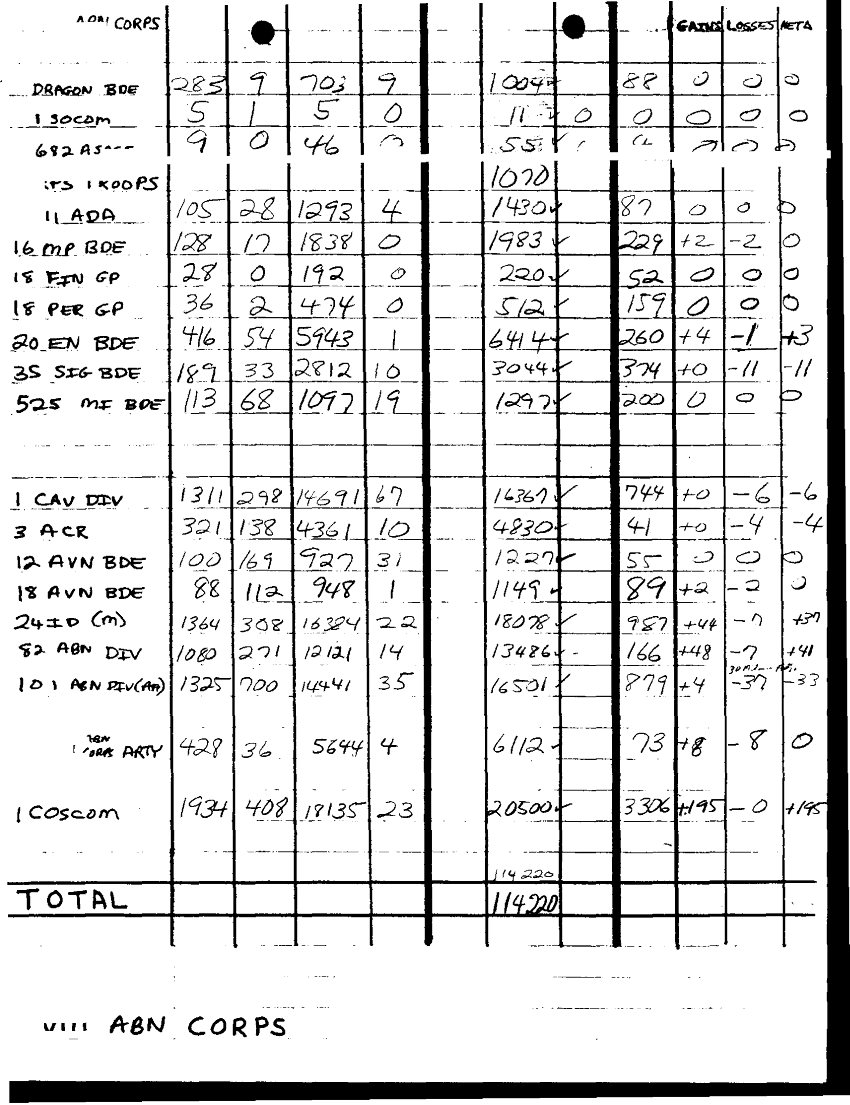 CORPS GAINS LOSSES
DRAGON BDE 283 9 703 9 1004 88 0 0 0
1 SOCOM 5 1 5 0 11 0 0 0 0 0
682 9 0 46 55
1070
11 ADA 105 28 1293 4 1430 87 0 0 0
16 MP BDE 128 17 1838 0 1983 229 +2 -2 0
18 FIN GP 28 0 192 0 220 52 0 0 0
18 PER GP 36 2 474 0 512 159 0 0 0
20 EN BDE 416 54 5943 1 6414 260 +4 -1 +3
35 SIG BDE 189 33 2812 10 3044 374 +0 -11 -11
525 MI BDE 113 68 1097 19 1297 200 0 0 0
1 CAV DIV 1311 298 14691 67 16367 744 +0 -6 -6
3 ACR 321 138 4361 10 4830 41 +0 -4 -4
12 AVN BDE 100 169 927 31 1227 55 0 0 0
18 AVN BDE 88 112 948 1 1149 89 +2 -2 0
24 ID (M) 1364 308 16384 22 18078 987 +44 -7 +37
82 ABN DIV 1080 271 12121 14 13486 166 +48 -7 +41
101 ABN DIV(AA) 1325 700 14441 35 16501 879 +4 -37 -33
ARTY 428 36 5644 4 6112 73 +8 -8 0
1 COSCOM 1934 408 18135 23 20500 3306 +195 -0 +195
114220
TOTAL 114220
ABN CORPS